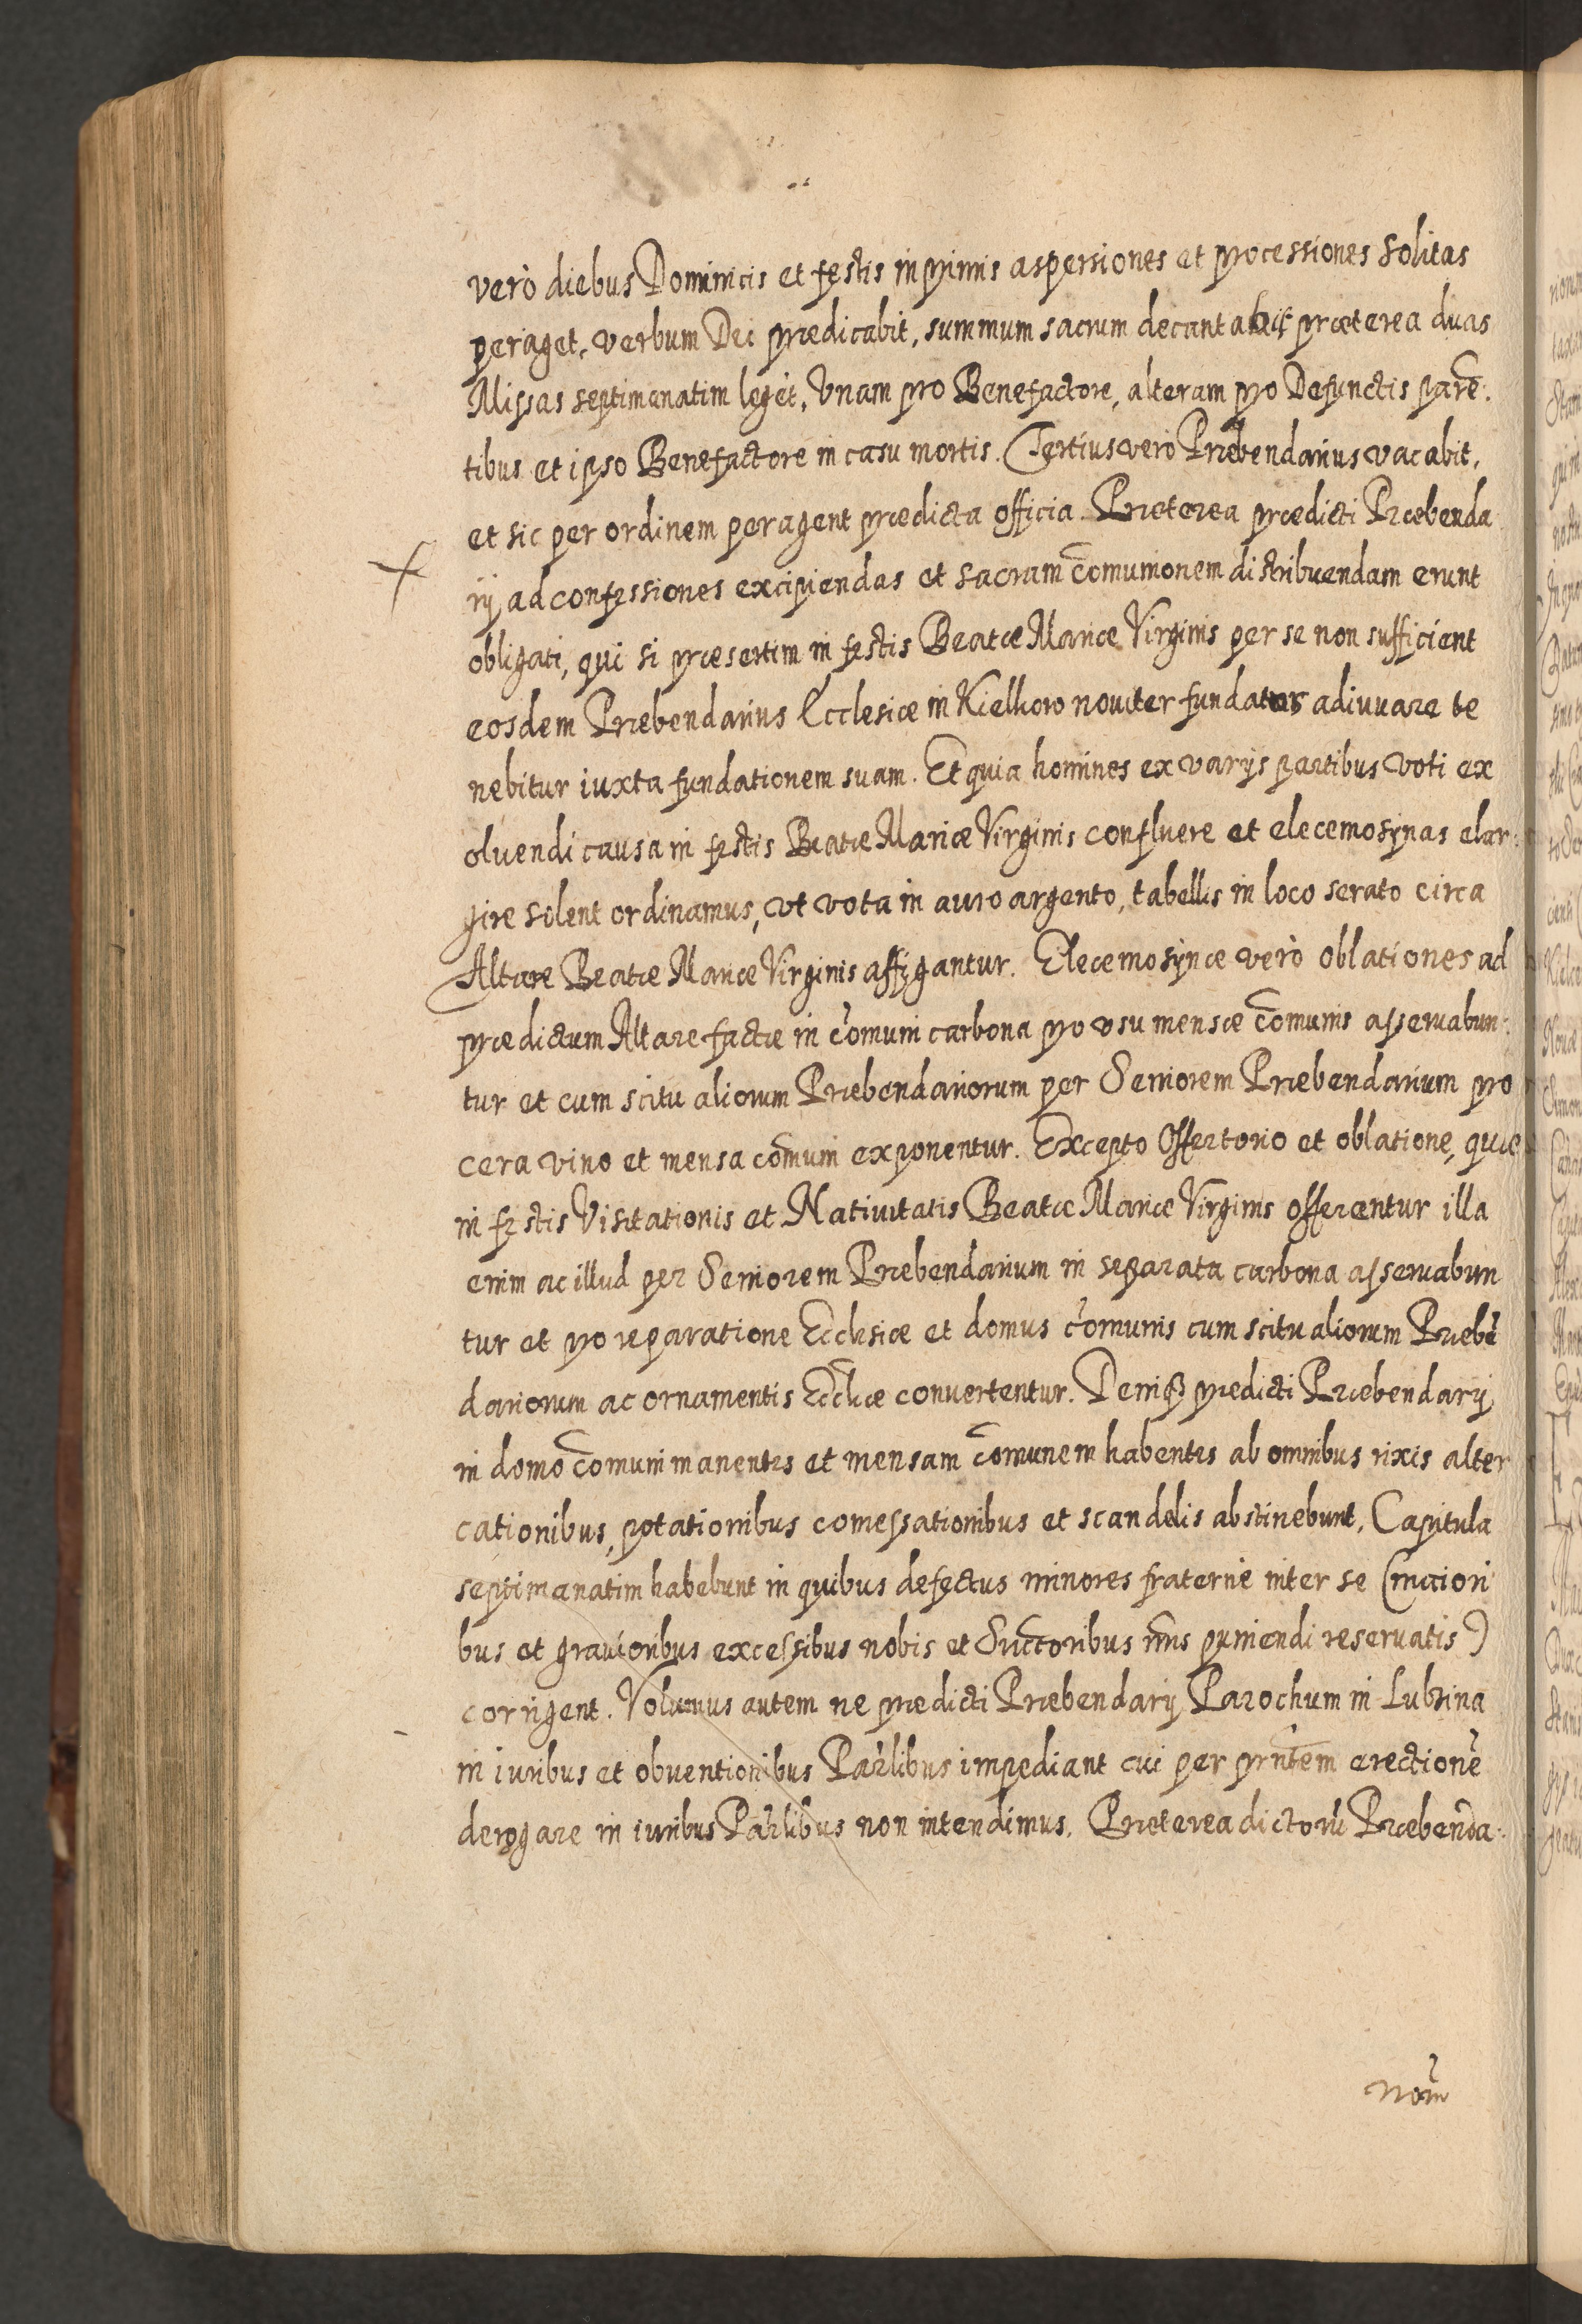 verò diebus Dominicis et festis inprimis aspersiones et processiones solitas
peraget, verbum Dei prædicabit, summum sacrum decantabit præterea duas
Missas septimanatim leget, Vnam pro Benefactore, alteram pro Defunctis parē:
tibus et ipso Benefactore in casu mortis. Tertius verò Præbendarius vacabit,
et sic per ordinem peragent prædicta officia. Præterea prædicti Præbenda
rij ad confessiones excipiendas et sacram com̄unionem distribuendam erunt
obligati, qui si præsertim in festis Beatæ Mariæ Virginis per se non sufficient
eosdem Præbendarius Ecclesiæ in Kielkow nouiter fundatus adiuuare te
nebitur iuxta fundationem suam. Et quia homines ex varijs partibus voti ex
oluendi causa in festis Beatæ Mariæ Virginis confluere et eleemosynas elar:
gire solent ordinamus, vt vota in auro argento, tabellis in loco serato circa
Altare Beatæ Mariæ Virginis affigantur. Eleemosynæ verò oblationes ad
prædictum Altare factæ in com̄uni carbona pro vsu mensæ com̄unis asseruabun:
tur et cum scitu aliorum Præbendariorum per Seniorem Præbendarium pro
cera vino et mensa com̄uni exponentur. Excepto Offertorio et oblatione, quæ
in festis Visitationis et Natiuitatis Beatæ Mariæ Virginis offerentur illa
enim ac illud per Seniorem Præbendarium in separata carbona asseruabun
tur et pro reparatione Ecclesiæ et domus com̄unis cum scitu aliorum Præbē
dariorum ac ornamentis Eccl̄iæ conuertentur. Deniq3 prædicti Præbendarij
in domo com̄uni manentes et mensam com̄unem habentes ab omnibus rixis alter
cationibus, potationibus comessationibus et scandelis abstinebunt, Capitula
septimanatim habebunt in quibus defectus minores fraternè inter se (maiori
bus et grauioribus excessibus nobis et Succ̄oribus nr̄is puniendi reseruatis)
corrigent. Volumus autem ne prædicti Præbendarij Parochum in Lubzina
in iuribus et obuentionibus Par̄libus impediant cui per pn̄tem erectionē
derogare in iuribus Par̄libus non intendimus. Præterea dictorū Præbenda: